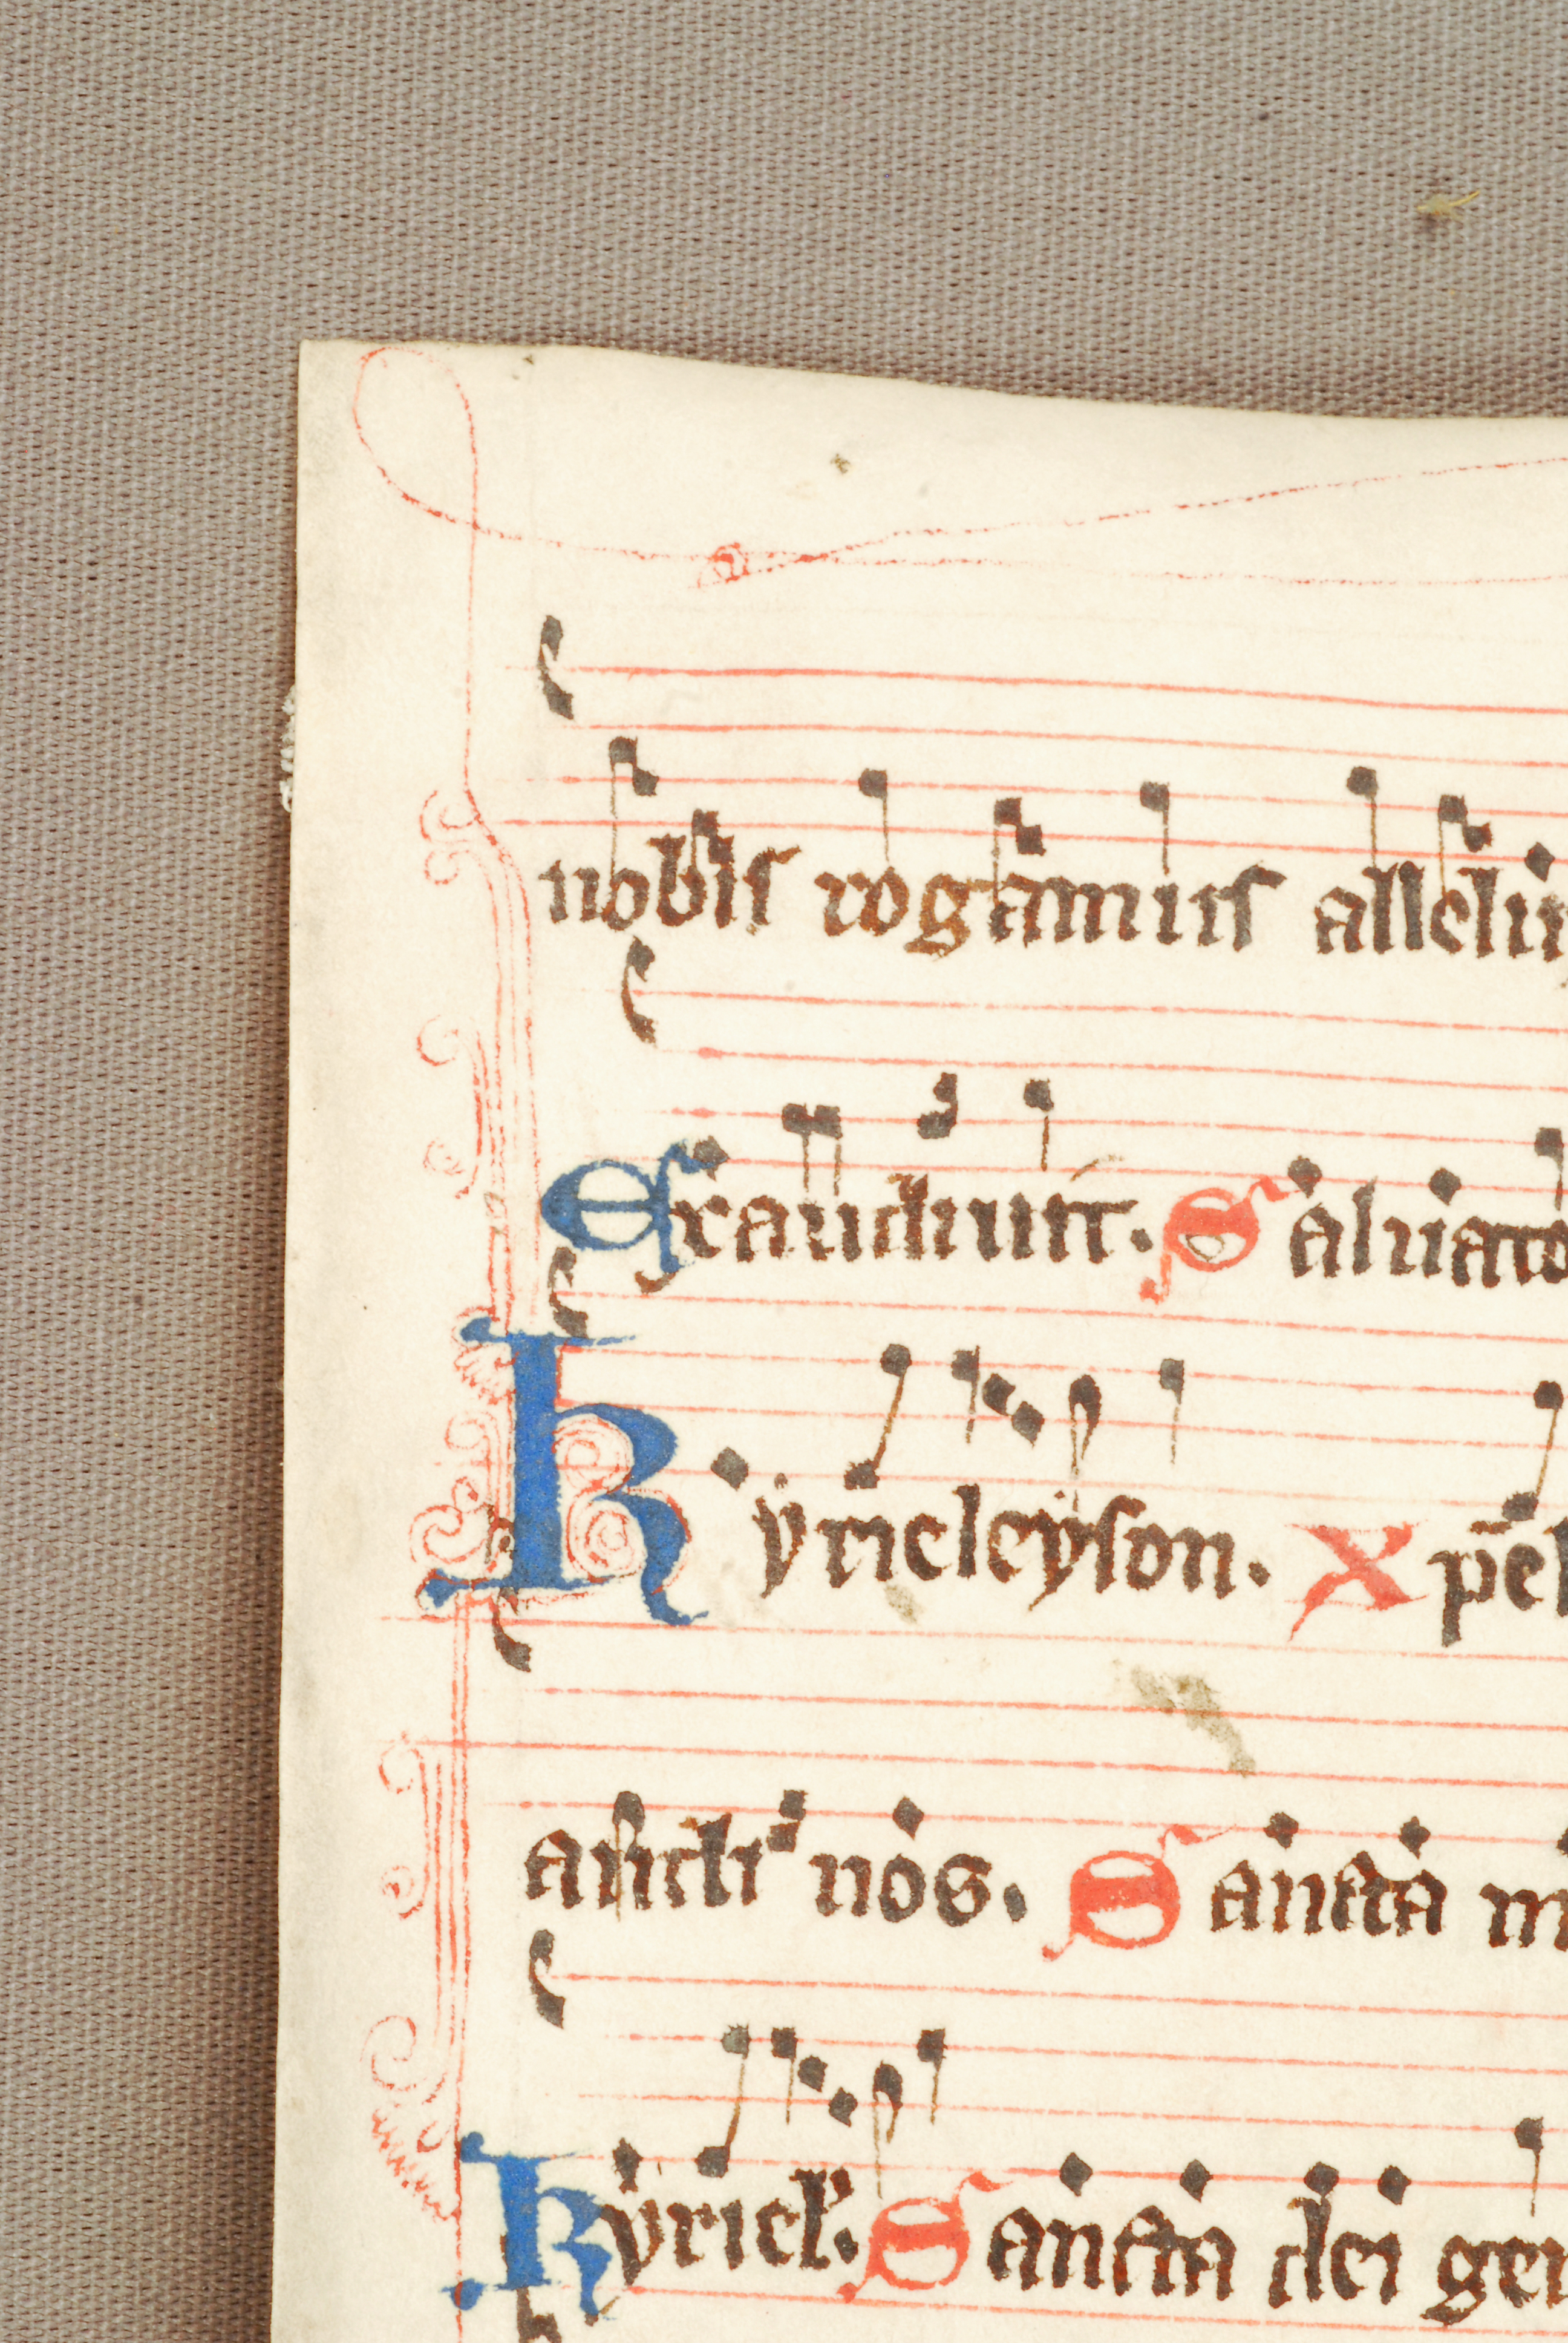 nobis rogamus allelu
Exaudiunt. Saluato
Kyrieleyson. Xp̄el
audi nos. Sancta m
Kyriel. Sancta dei gen